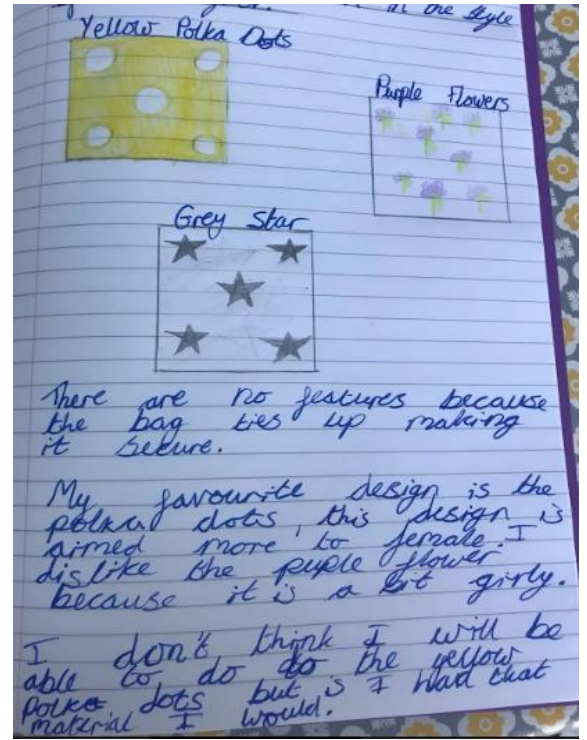 in the style
Yellow Polka Dots
Purple Flowers
Grey Star
There are no features because
the bag ties up making
it secure.
My favourite design is the
polka dots, this design is
aimed more to female. I
dislike the puple flower
because it is a bit girly.
I don't think I will be
able to do do the yellow
polka dots but is I had that
material I would.